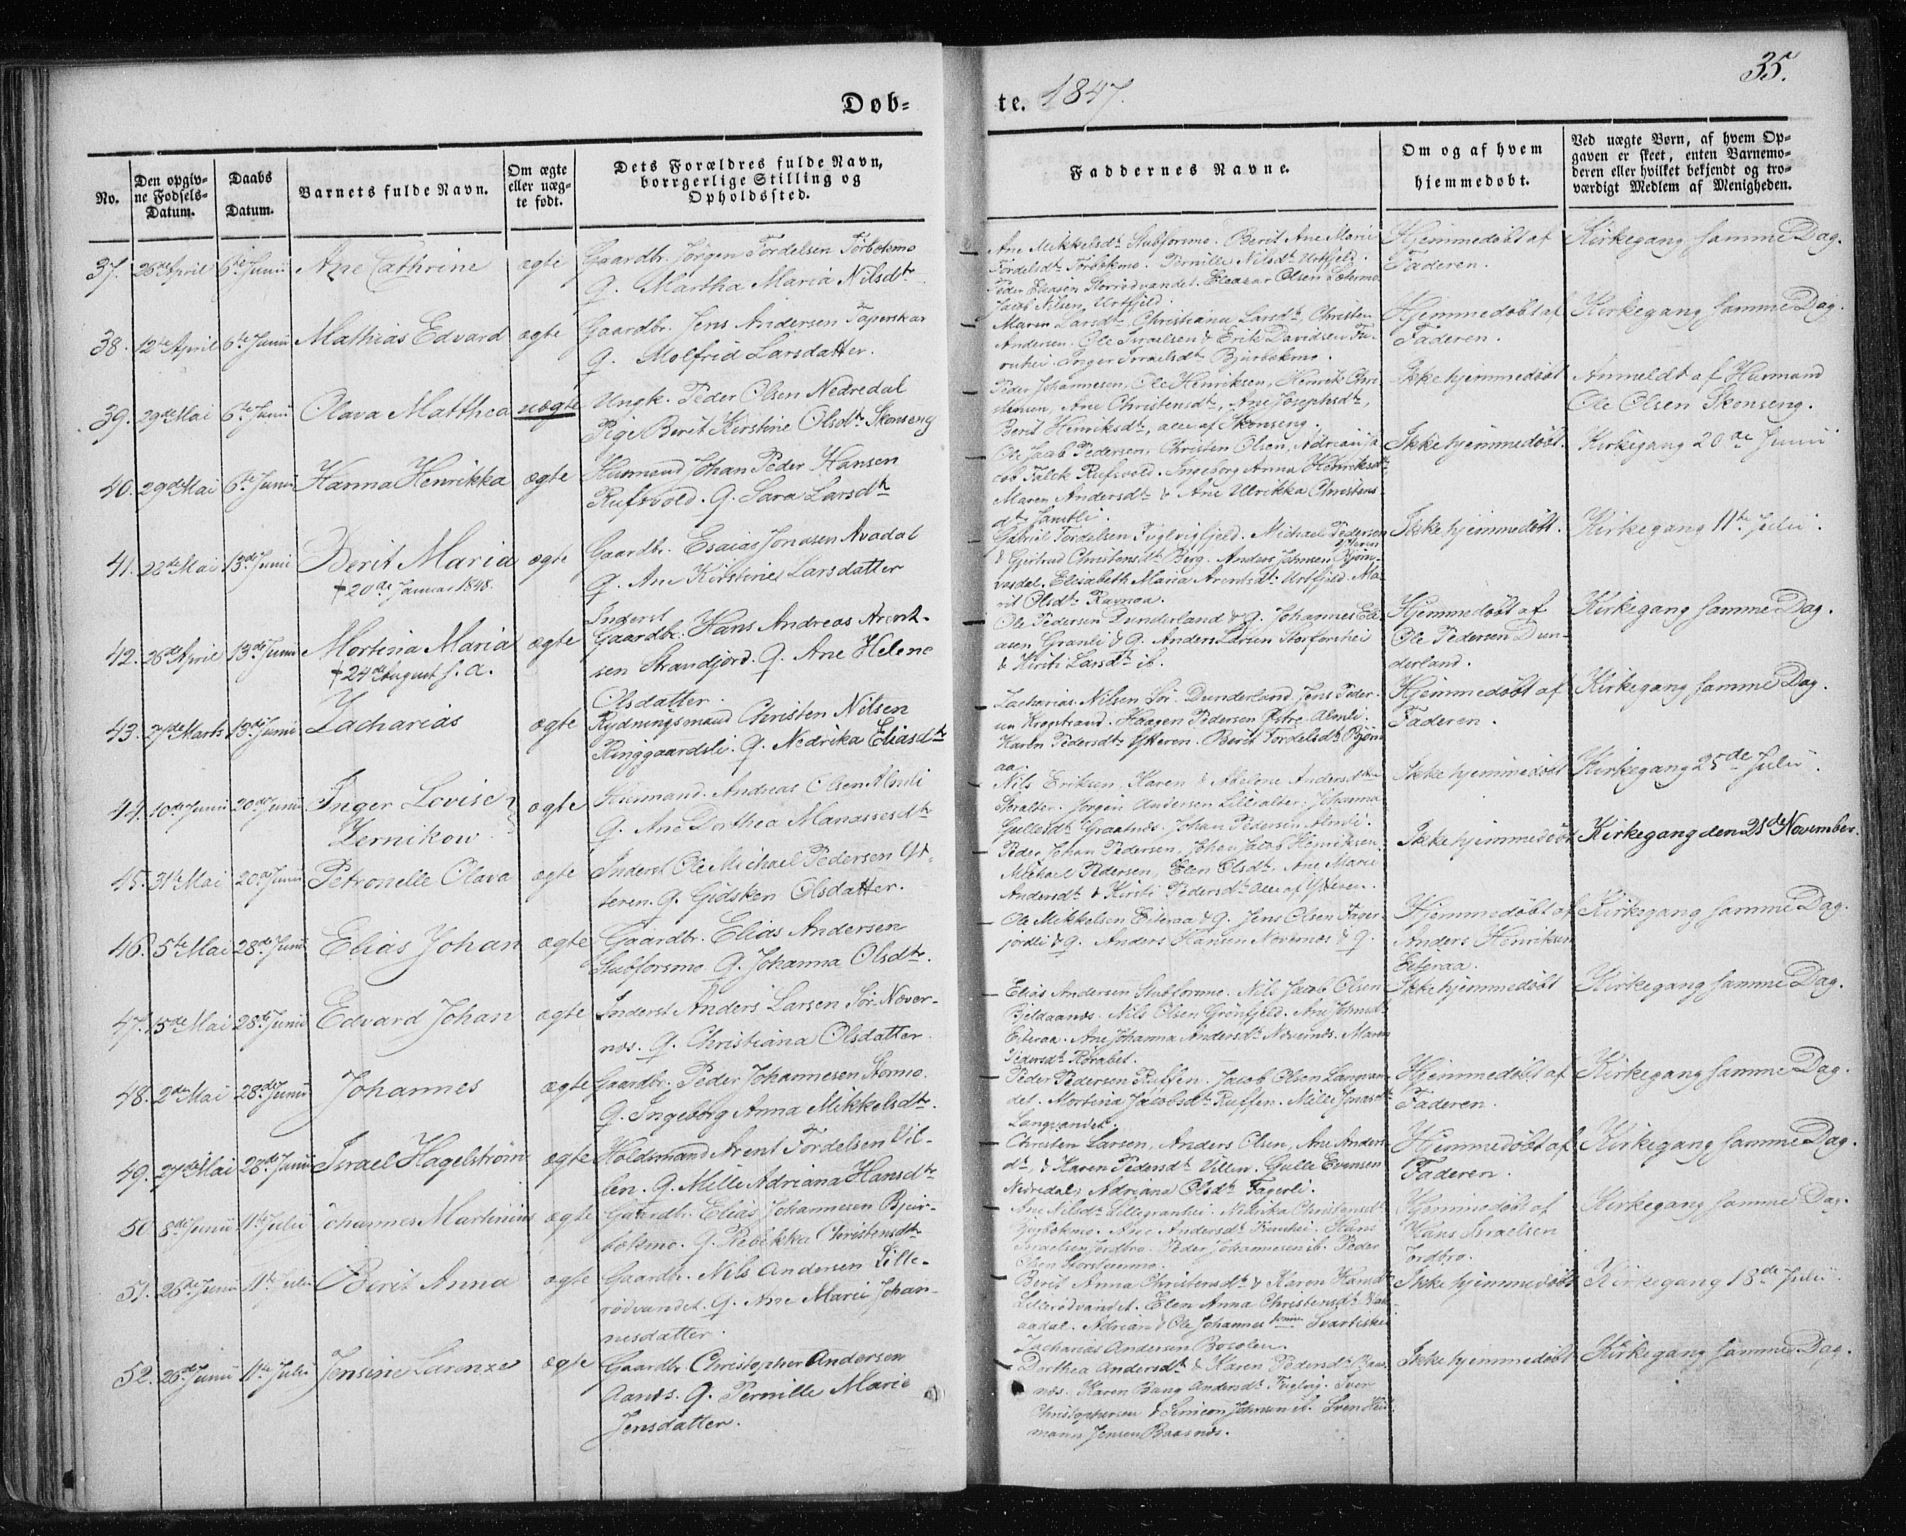 35.
Døb-
te. 1847.
No.
Den opgiv-
ne Fødsels-
Datum.
Daabs
Datum.
Barnets fulde Navn.
Om ægte
eller uæg-
te født.
Dets Forældres fulde Navn,
borrgerlige Stilling og
Opholdssted.
Faddernes Navne.
Om og af hvem
hjemmedøbt.
Ved uægte Børn, af hvem Op-
gaven er skeet, enten Barnemo-
deren eller hvilket bekjendt og tro-
værdigt Medlem af Menigheden.
37. 26de April 6te Junii Ane Cathrine ægte
Gaardbr. Jørgen Tordelsen Tørbekmo
Q. Martha Maria Nilsdtr
Ane Mikkelsdt Stubforsmo. Berit Ane Marie
Tordelsdt Tørbekmo. Pernille Nilsdt Urtfjeld.
Peder Eliasen Storrødvandet. Eleazar Olsen
Jacob Nilsen Urtfjeld.
Hjemmedøbt af
Faderen.
Kirkegang samme Dag.
38. 12te April 6te Junii Mathias Edvard ægte
Gaardbr. Jens Andersen Taperskar
Q. Molfrid Larsdatter.
Maren Larsdt, Christiana Larsdt, Christen
Andersen. Ole Israelsen & Erik Davidsen
Inger Israelsdt Bjurbekmo.
Hjemmedøbt af
Faderen.
Kirkegang samme Dag.
39. 29de Mai 6te Junii Olava Matthea uægte
Ungk. Peder Olsen Nedredal
Pige Berit Kirstine Olsdt Skonseng
Peder Johannesen, Ole Henriksen, Henrik Chri-
stensen, Ane Christensdt, Ane Josephsdt,
Berit Henriksdt, alle af Skonseng.
Ikke hjemmedøbt
Anmeldt af Husmand
Ole Olsen Skonseng.
40. 29de Mai 6te Junii Hanna Henrikka ægte
Husmand Johan Peder Hansen
Rufsvold. Q. Sara Larsdtr
Ole Jacob Pedersen, Christen Olsen, Adrian Ja-
cob Falck Rufsvold. Ingeborg Anna Henriksdt
Maren Andersdt & Ane Ulrikka Christens-
dt Jamtli.
Ikke hjemmedøbt.
Kirkegang 20de Junii
41. 22de Mai 13de Junii Berit Maria ægte
† 20de Januar 1848.
Gaardbr. Esaias Jonasen Avadal
Q. Ane Kirstine Larsdatter
Gabriel Tordelsen Fuglvigfjeld. Michael Pedersen
Ytteren
& Gjertrud Christensdt Berg. Anders Johnsen Bjørn-
Elisabeth Maria Arentsdt Urtfjeld. Ma-
rit Olsdt Ravnaa.
Ikke hjemmedøbt.
Kirkegang 11te Julii.
42. 26de April 13de Junii Mortina Maria ægte
† 24de August s. a.
Inderst
Gaardbr. Hans Andreas Arent-
sen Strandjord. Q. Ane Helene
Olsdatter.
Ole Pedersen Dunderland & Q. Johannes Eli-
asen Granli & Q. Anders Larsen Storforshei
& Kirsti Larsdt ib.
Hjemmedøbt af
Ole Pedersen Dun-
derland.
Kirkegang samme Dag.
43. 27de Marts 13de Junii Zacharias ægte
Rydningsmand Christen Nilsen
Ringgaardsli. Q. Nedrika Eliasdt
Zacharias Nilsen Sør Dunderland. Jens Peder-
sen Krogstrand. Haagen Pedersen Østre Almli.
Karen Pedersdt Ytteren. Berit Tordelsdt Bjørn-
aa.
Hjemmedøbt af
Faderen.
Kirkegang samme Dag.
44. 10de Junii 20de Junii Inger Lovise
Zernikow ægte
Husmand. Andreas Olsen Almli
Q. Ane Dorthea Manassesdtr
Nils Eriksen, Karen & Abelone Andersdt
Storalter. Jørgen Andersen Lillealter. Johanna
Gullesdt Graatnæs. Johan Pedersen Almli.
Ikke hjemmedøbt
Kirkegang 25de Julii.
45. 31te Mai 20de Junii Petronelle Olava ægte
Inderst Ole Michael Pedersen Yt-
teren. Q. Gidsken Olsdatter.
Peder Johan Pedersen, Johan Jacob Henriksen.
Mikael Pedersen, Elen Olsdt. Ane Marie
Andersdt & Kirsti Pedersdt alle af Ytteren.
Ikke hjemmedøbt
Kirkegang den 21de November.
46. 5te Mai 28de Junii Elias Johan ægte
Gaardbr. Elias Andersen
Stubforsmo. Q. Johanna Olsdtr.
Ole Mikkelsen Eiteraa & Q. Jens Olsen Fager-
jordli & Q. Anders Hansen Nævernæs & Q.
Hjemmedøbt af
Anders Henriksen
Eiteraa.
Kirkegang samme Dag.
47. 15de Mai 28de Junii Edvard Johan ægte
Inderst Anders Larsen Sør Næver-
næs. Q. Christiana Olsdatter.
Elias Andersen Stubforsmo. Nils Jacob Olsen
Bjeldaanæs. Nils Olsen Grønfjeld. Ane Johnsdt
Eiteraa. Ane Johanna Andersdt Nævernæs. Maren
Pedersdt
Ikke hjemmedøbt
Kirkegang samme Dag.
48. 2de Mai 28de Junii Johannes ægte
Gaardbr. Peder Johannesen Stormo.
Q. Ingeborg Anna Mikkelsdtr.
Peder Pedersen Ruffen. Jacob Olsen Langvan-
det. Mortina Jacobsdt Ruffen. Mille Jonasdt
Langvandet.
Hjemmedøbt af
Faderen.
Kirkegang samme Dag.
49. 27de Mai 28de Junii Israel Hagelstrøm ægte
Holdsmand Arent Tordelsen Vil-
len. Q. Mille Adriana Hansdtr
Christen Larsen, Anders Olsen, Ane Anders-
dt, & Karen Pedersdt Villen. Gulle Evensen
Nedredal, Adriana Olsdt Fagerli.
Hjemmedøbt af
Faderen.
Kirkegang samme Dag.
50. 8de Junii 11te Julii Johannes Martinius ægte
Gaardbr. Elias Johannesen Bjur-
bekmo. Q. Rebekka Christensdtr.
Ane Nilsdt Lillegranhei. Nikrika Christensdt
Bjurbekmo. Ane Andersdt. Hans
Israelsen Jordbro. Peder Johannesen ib. Peder
Olsen Storforsmo.
Hjemmedøbt af
Hans Israelsen
Jordbro.
Kirkegang samme Dag.
51. 26de Junii 11te Julii Berit Anna ægte
Gaardbr. Nils Andersen Lille-
rødvandet. Q. Ane Marie Johan-
nesdatter.
Berit Anna Christensdt & Karen Hansdt
Lillerødvandet. Elen Anna Christensdt
Adrian & Ole Johannes Svartisken
Zacharias Andersen Bosolen.
Ikke hjemmedøbt
Kirkegang 18de Julii.
52. 26de Junii 11te Julii Jensine Lorenze ægte
Gaardbr. Christopher Andersen
Aanæs. Q. Pernille Marie
Jensdatter.
Dorthea Andersdt & Karen Pedersdt Baas-
næs. Karen Bang Andersdt Fuglvig. Sven
Christophersen & Simeon Johnsen ib. Sven Hei-
mann Jensen Baasnæs.
Ikke hjemmedøbt
Kirkegang samme Dag.